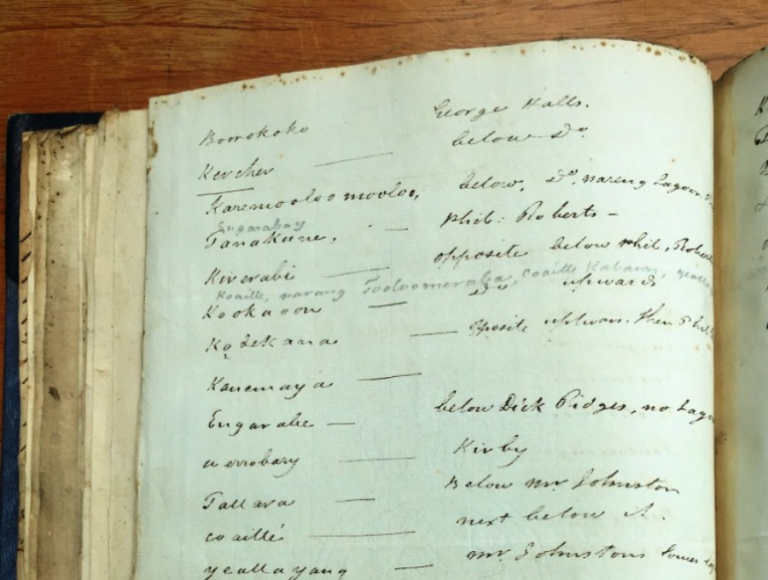 Borrokoko George Halls.
Kercher — below Do
Karemooloo mooloo, below, Do, nareng Lagoon
Engaraby
Tanakune, — Phil: Roberts —
Kiverabi — opposite below Phil, Robert
Koaille, narang Tooloomeraba, Coaille Kabaun,
Kookaoon — Do upwards
Kodekana — oposite
Kanemaya —
Engarabe — below Dick Ridges, no Lago
werrobary — Kirby
Tallara — Below Mr Johnston
coaillé — next below it.
yeallayang — Mr Johnstons lower